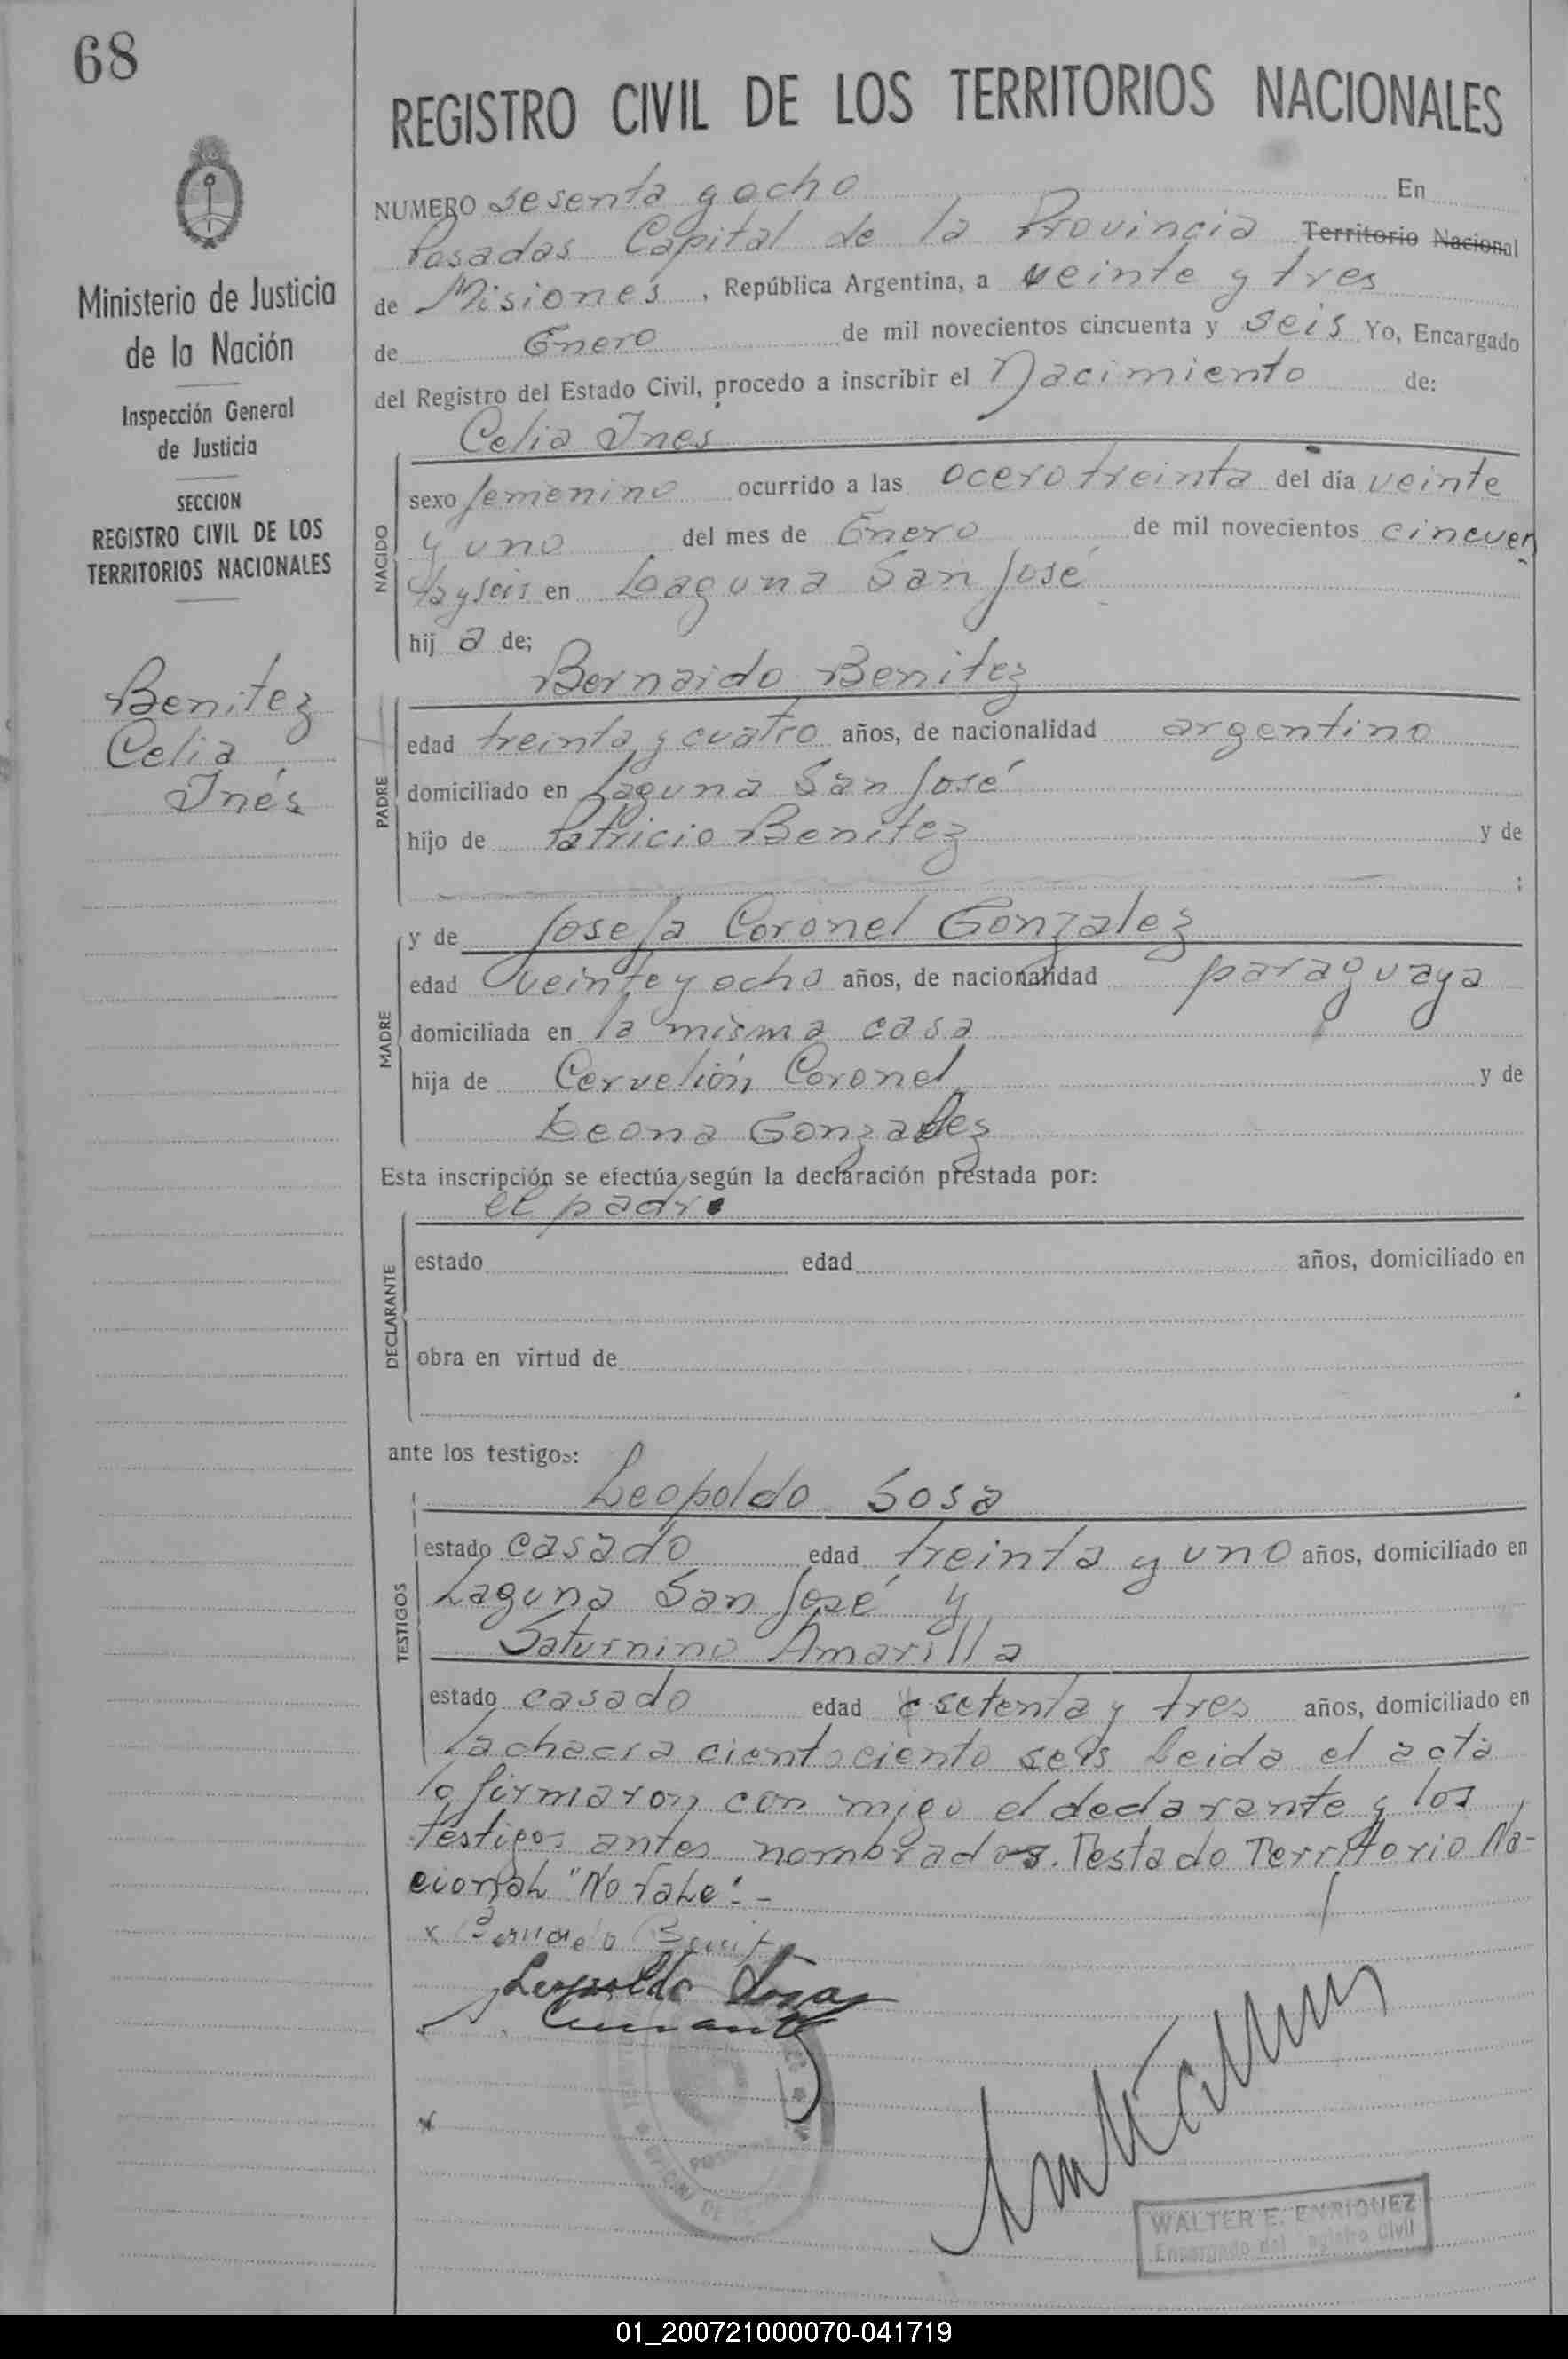 68
REGISTRO CIVIL DE LOS TERRITORIOS NACIONALES
Ministerio de Justicia
de la Nación
Inspección General
de Justicia
SECCION
REGISTRO CIVIL DE LOS
TERRITORIOS NACIONALES
Benitez
Celia
Inés
NUMERO sesenta y ocho En
Posadas Capital de la Provincia Territorio Nacional
de Misiones, República Argentina, a veinte y tres
de Enero de mil novecientos cincuenta y seis Yo, Encargado
del Registro del Estado Civil, procedo a inscribir el Nacimiento de:
Celia Ines
NACIDO
sexo femenino ocurrido a las ocero treinta del día veinte
y uno del mes de Enero de mil novecientos cincuen
ta y seis en Laguna San José
hij a de;
Bernardo Benitez
PADRE
edad treinta y cuatro años, de nacionalidad argentino
domiciliado en Laguna San José
hijo de Patricio Benitez y de
;
MADRE
y de Josefa Coronel Gonzalez
edad veinte y ocho años, de nacionalidad paraguaya
domiciliada en la misma casa
hija de Cervelión Coronel y de
Leona Gonzalez
Esta inscripción se efectúa según la declaración prestada por:
el padre
DECLARANTE
estado edad años, domiciliado en
obra en virtud de
.
ante los testigos:
Leopoldo Sosa
TESTIGOS
estado casado edad treinta y uno años, domiciliado en
Laguna San José y
Saturnino Amarilla
estado casado edad setenta y tres años, domiciliado en
la chacra ciento ciento seis Leida el acta
la firmaron con migo el declarante y los
testigos antes nombrados. Testado Territorio Na-
cional "No Vale".-
x Bernardo Benit
Leopoldo Sosa
x
WALTER E. ENRIQUEZ
Encargado del Registro Civil
01_200721000070-041719